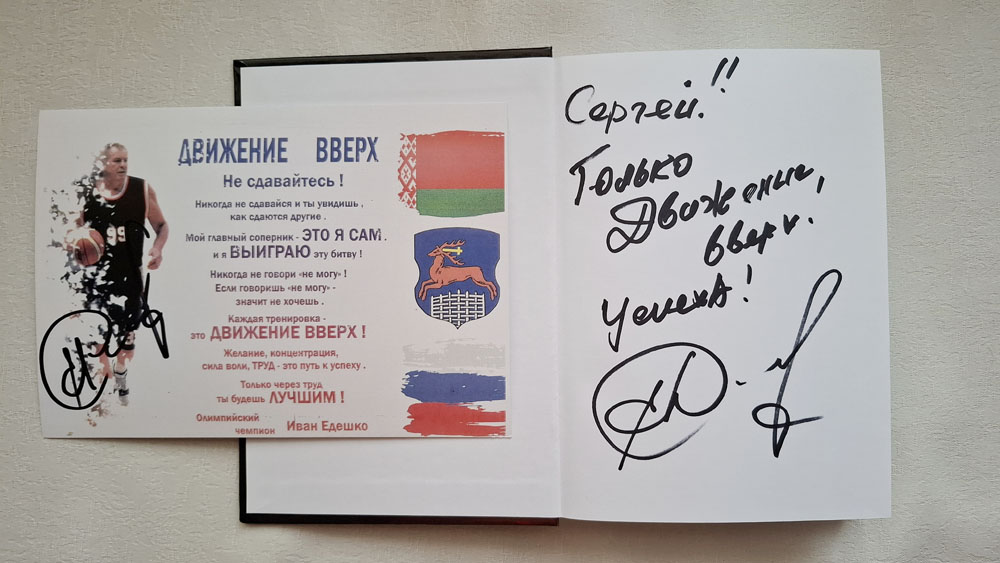 ДВИЖЕНИЕ ВВЕРХ
Не сдавайтесь !
Никогда не сдавайся и ты увидишь ,
как сдаются другие .
Мой главный соперник - ЭТО Я САМ .
и я ВЫИГРАЮ эту битву !
Никогда не говори «не могу» !
Если говоришь «не могу» -
значит не хочешь .
Каждая тренировка -
это ДВИЖЕНИЕ ВВЕРХ !
Желание, концентрация,
сила воли, ТРУД - это путь к успеху .
Только через труд
ты будешь ЛУЧШИМ !
Олимпийский
чемпион Иван Едешко
99
Сергей!!
Только
Движение,
вверх.
Успеха!